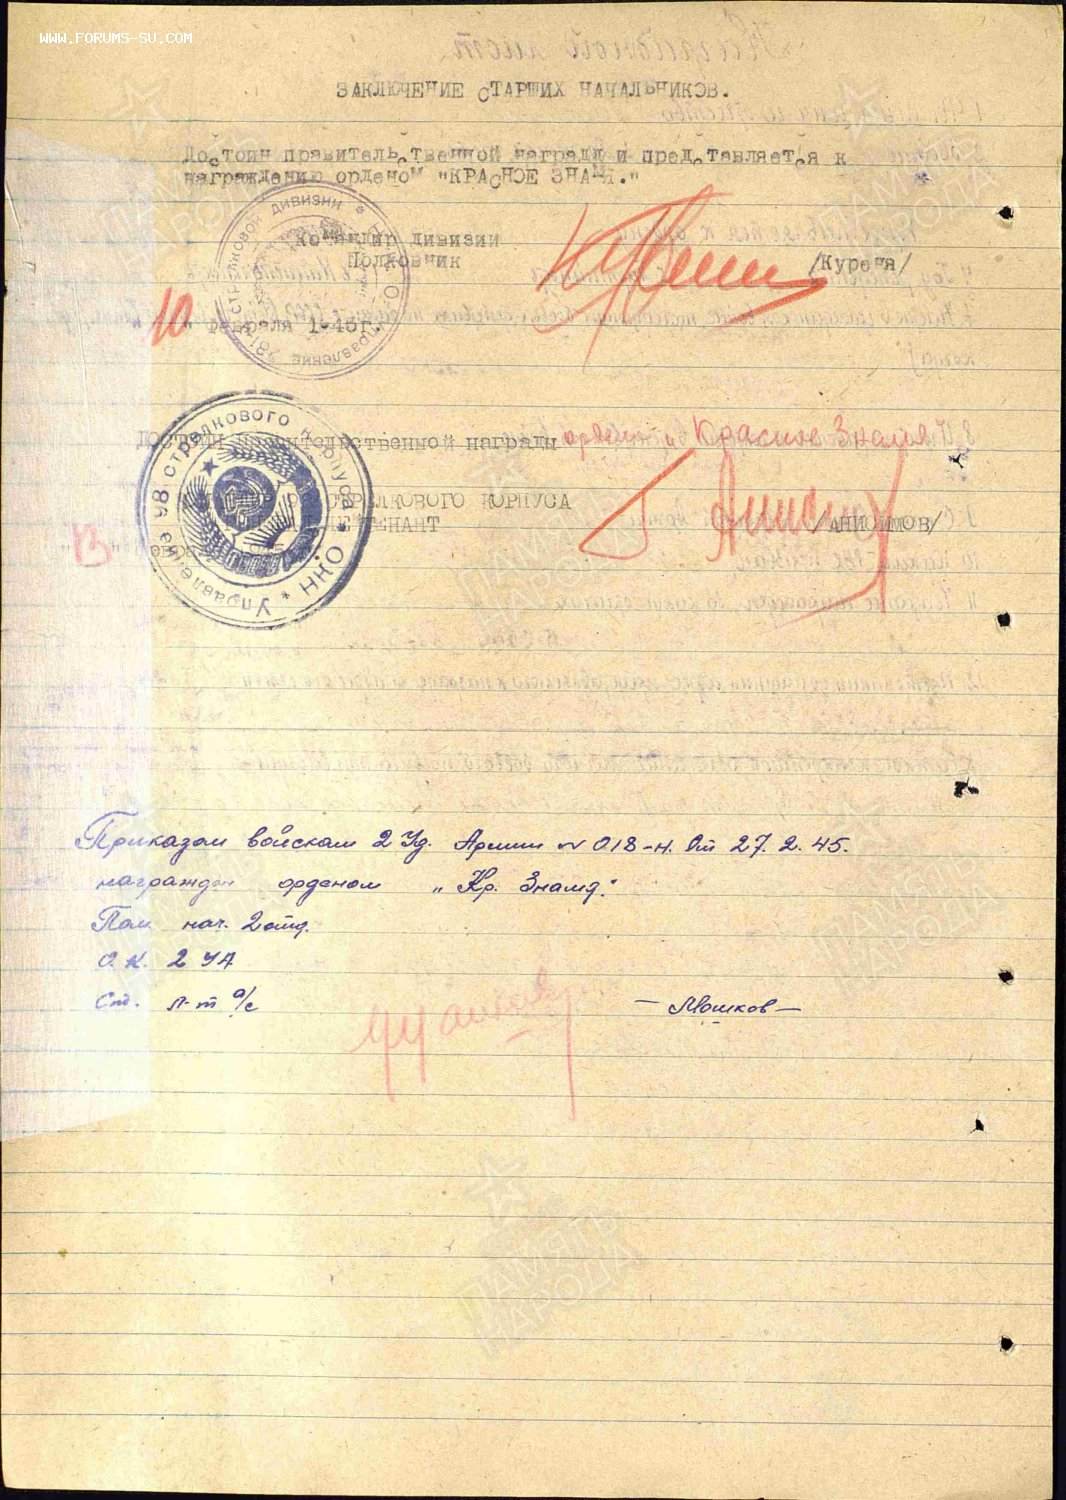 WWW.FORUMS-SU.COM
ЗАКЛЮЧЕНИЕ СТАРШИХ НАЧАЛЬНИКОВ.
Достоин правительственной награды и представляется к
награждению орденом "КРАСНОЕ ЗНАМЯ."
Командир дивизии
Полковник
/Куреня/
10 " Февраля 1945г.
стрелковой дивизии * НКО * Управление 281
ДОСТОИН правительственной награды орденом "Красное Знамя"
КОМАНДИР 98 СТРЕЛКОВОГО КОРПУСА
ГЕНЕРАЛ ЛЕЙТЕНАНТ
/АНИСИМОВ/
13
Управление 98 стрелкового корпуса * НКО *
Приказом войскам 2 Уд. Армии № 018-н. От 27.2.45.
награжден орденом „Кр. Знамя."
Пом. нач. 2 отд.
О.К. 2 УА
Ст. л-т а/с — Мошков —
ПАМЯТЬ
НАРОДА